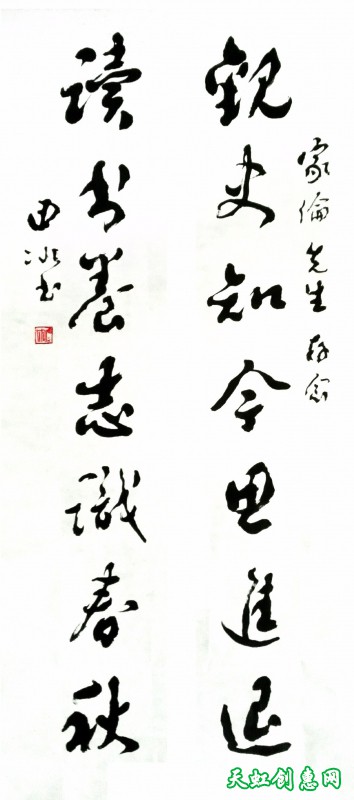 家倫先生存念
觀史知今思進退
讀书養志識春秋
田冰书
天虹创惠网